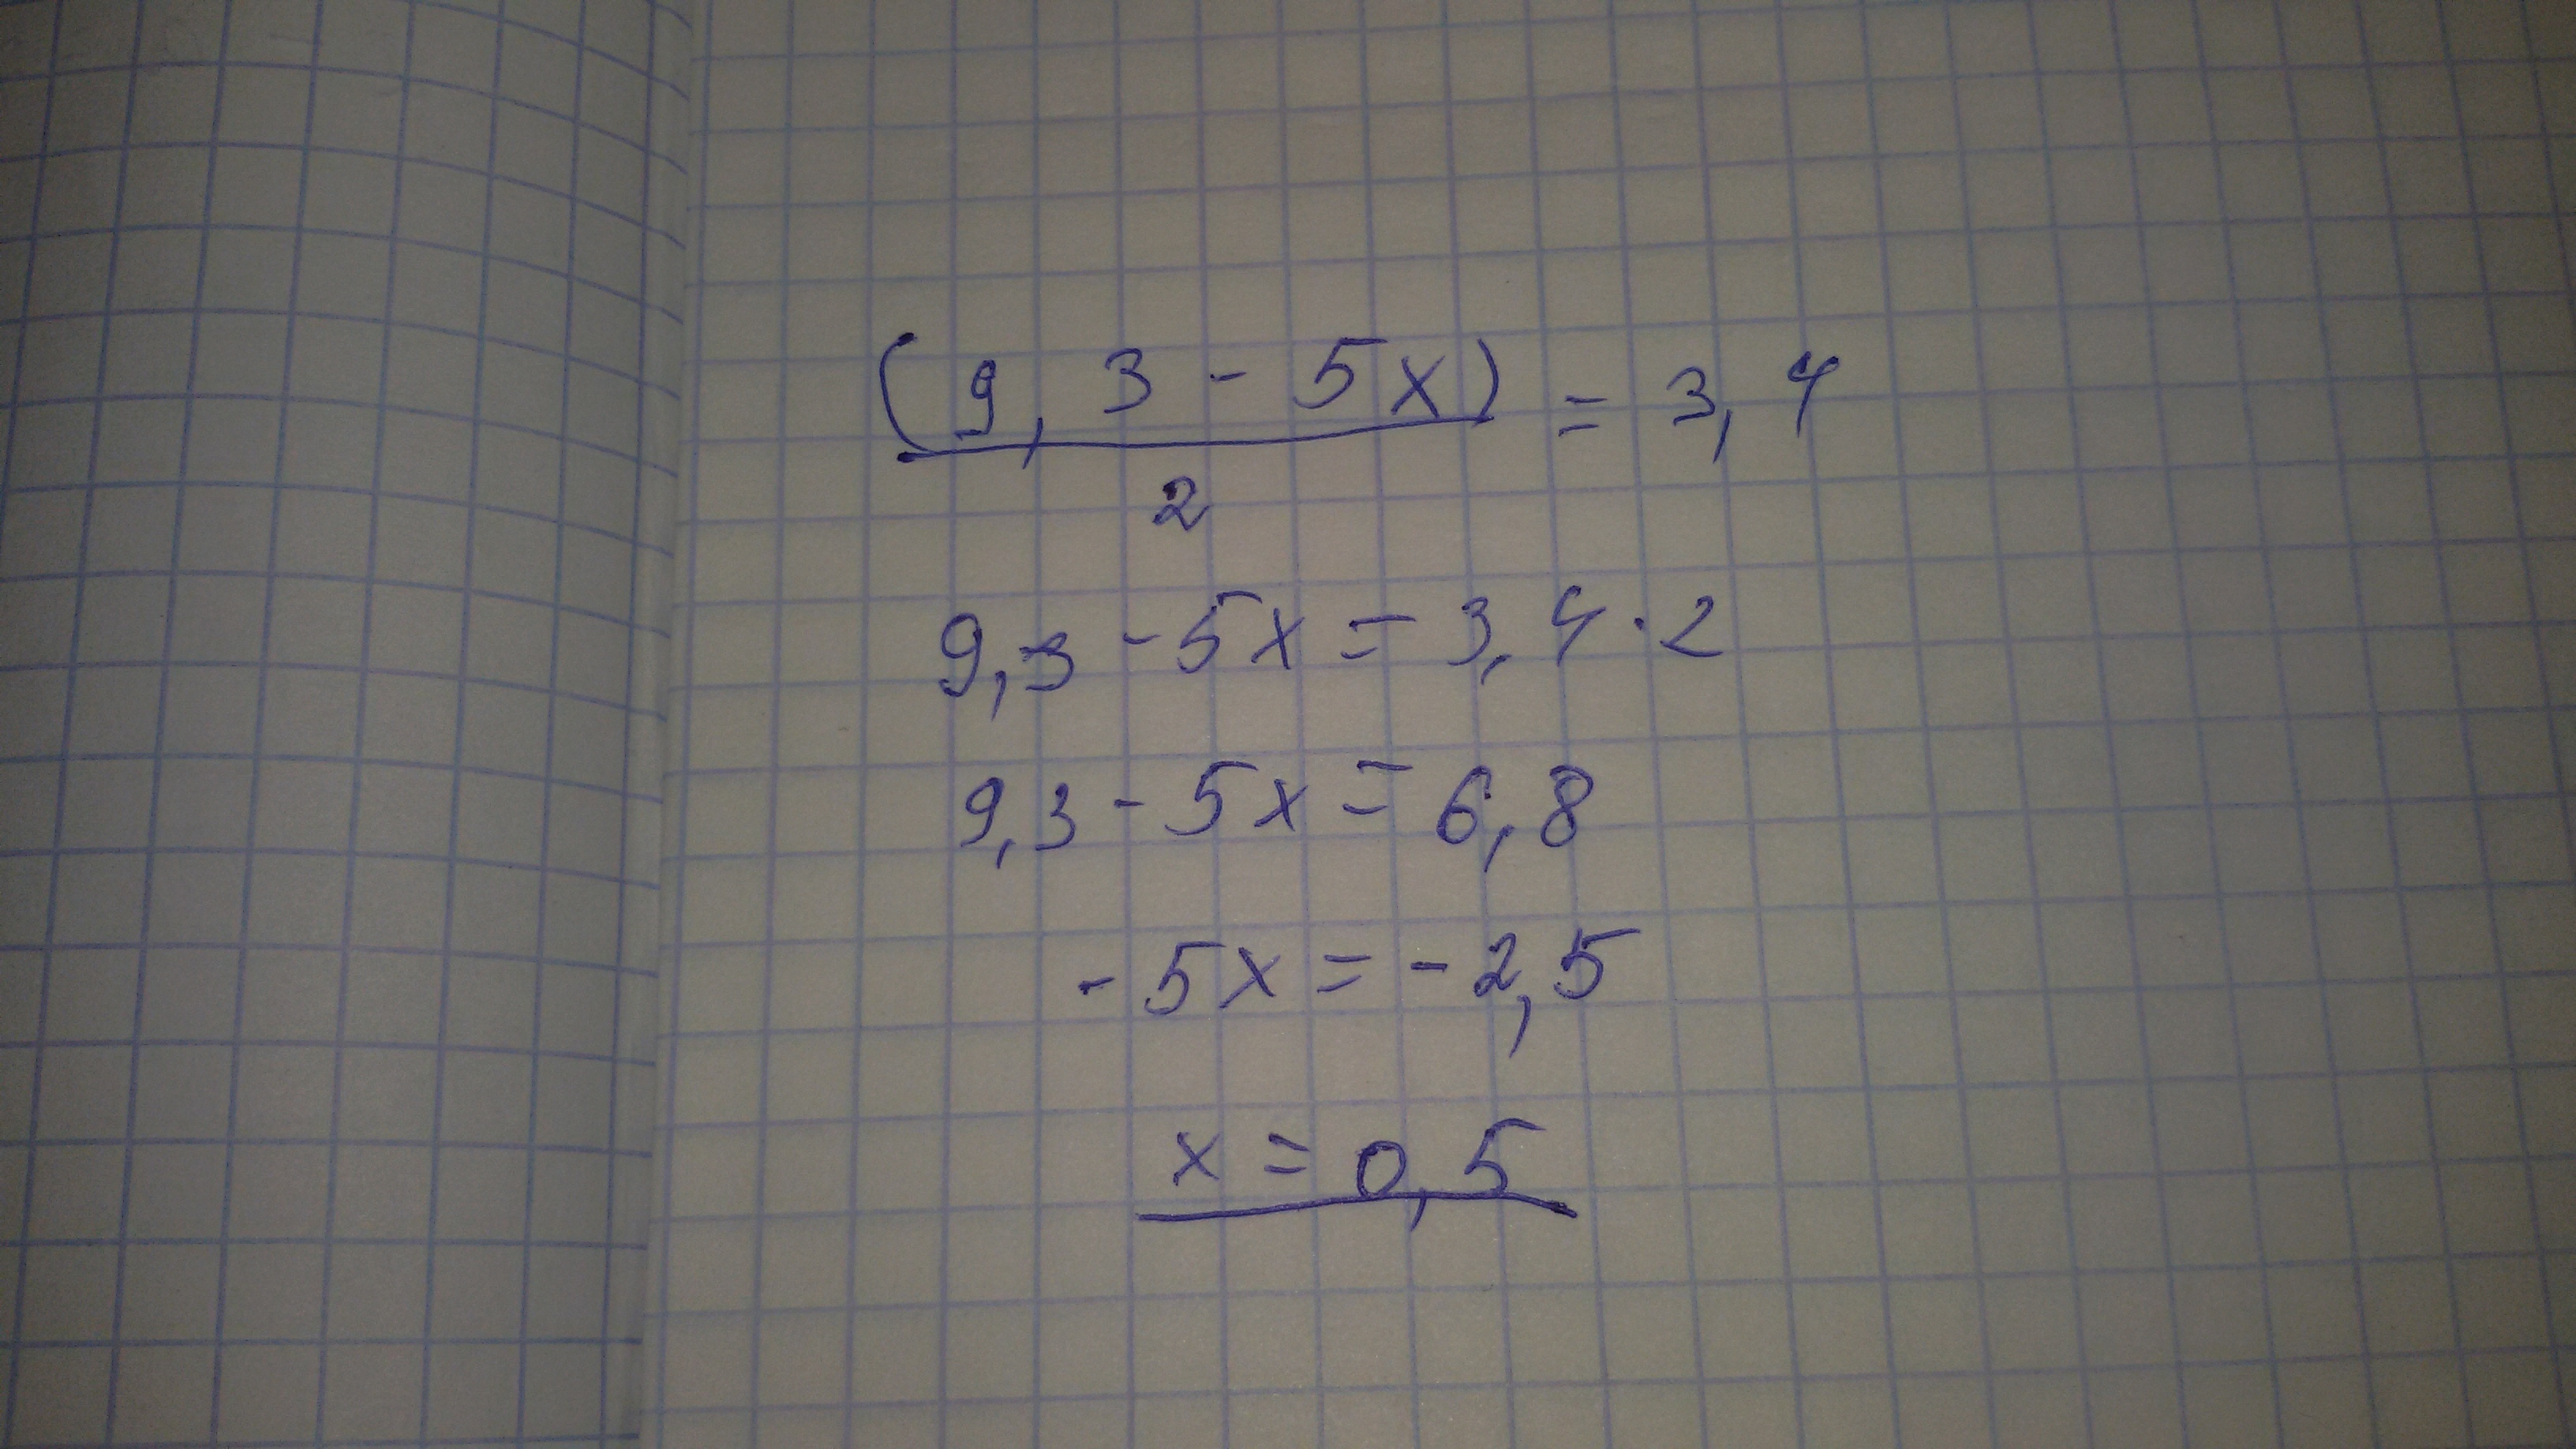 (9,3 - 5x) / 2 = 3,4
9,3 - 5x = 3,4 · 2
9,3 - 5x = 6,8
- 5x = - 2,5
x = 0,5